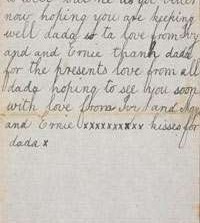 now hoping you are keeping
well dada so ta love from ivy
and and Ernie thank dada
for the presents love from all
dada hoping to see you soon
with love from Ivy and
and Ernie xxxxxxxxxx kisses for
dada x